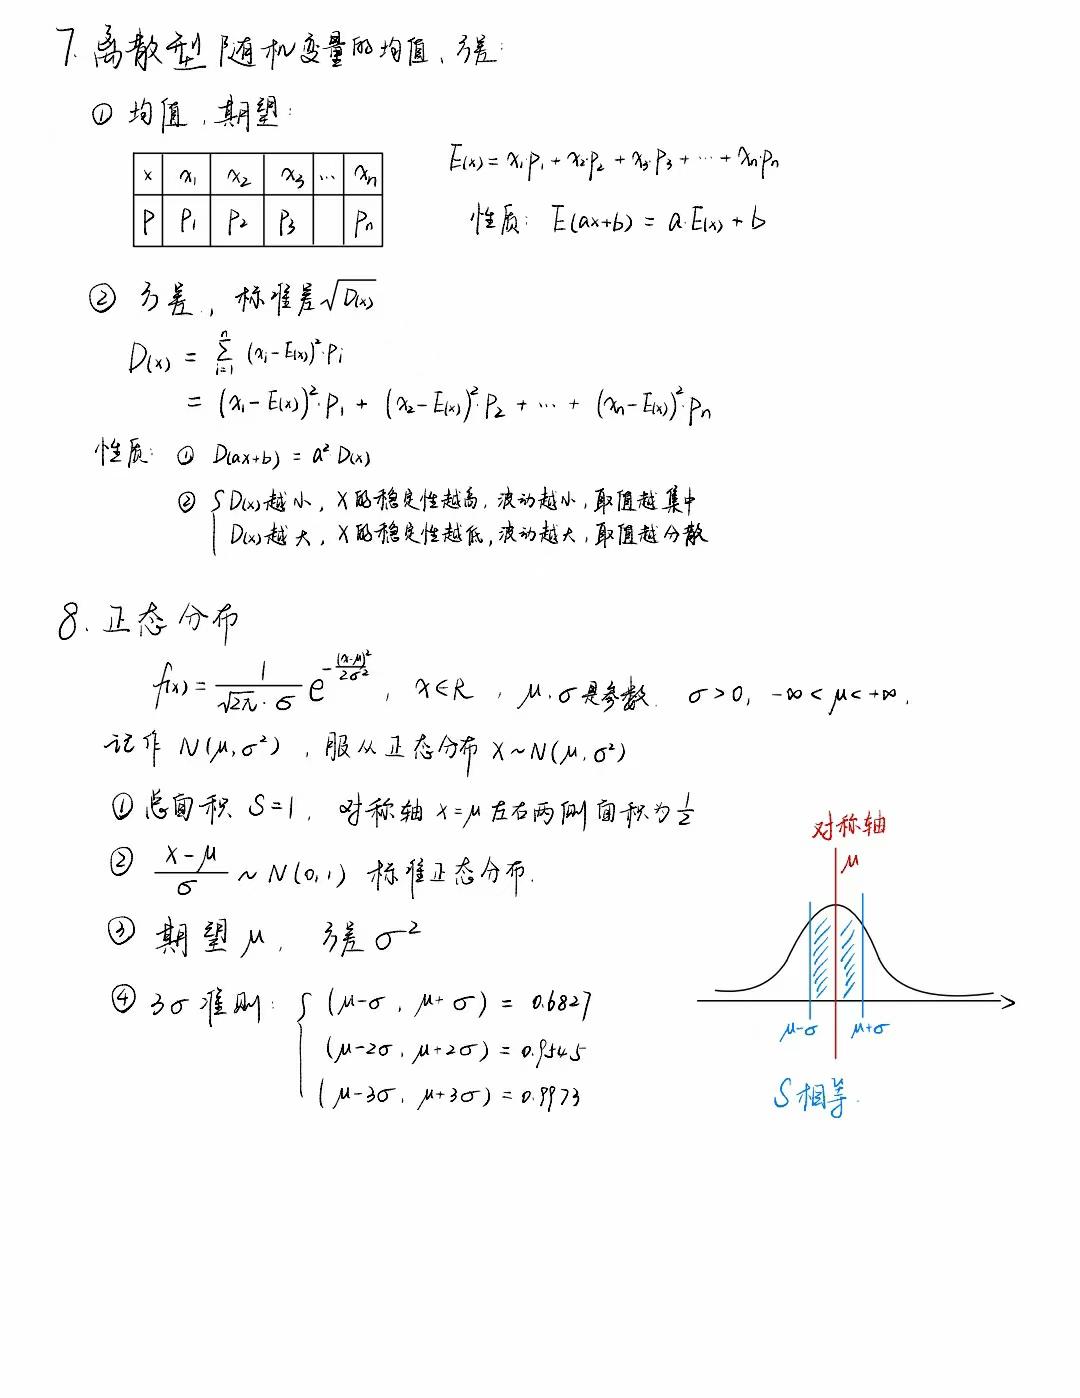 7. 离散型随机变量的均值、方差:
① 均值、期望:
x x₁ x₂ x₃ … xₙ
P P₁ P₂ P₃ Pₙ
E(x) = x₁·p₁ + x₂·p₂ + x₃·p₃ + … + xₙ·pₙ
性质: E(ax+b) = a·E(x) + b
② 方差, 标准差√D(x)
D(x) = ∑ᵢ₌₁ⁿ (xᵢ-E(x))²·pᵢ
= (x₁-E(x))²·p₁ + (x₂-E(x))²·p₂ + … + (xₙ-E(x))²·pₙ
性质: ① D(ax+b) = a²·D(x)
② { D(x)越小, X的稳定性越高, 波动越小, 取值越集中
D(x)越大, X的稳定性越低, 波动越大, 取值越分散
8. 正态分布
f(x) = 1/(√2π·σ) e^(-(x-μ)²/2σ²), x∈R, μ、σ是参数. σ>0, -∞<μ<+∞.
记作 N(μ,σ²), 服从正态分布 X~N(μ,σ²)
① 总面积 S=1, 对称轴 x=μ 左右两侧面积为1/2
② (X-μ)/σ ~ N(0,1) 标准正态分布.
③ 期望 μ, 方差 σ²
④ 3σ准则: { (μ-σ, μ+σ) = 0.6827
(μ-2σ, μ+2σ) = 0.9545
(μ-3σ, μ+3σ) = 0.9973
对称轴
μ
μ-σ μ+σ
S相等.